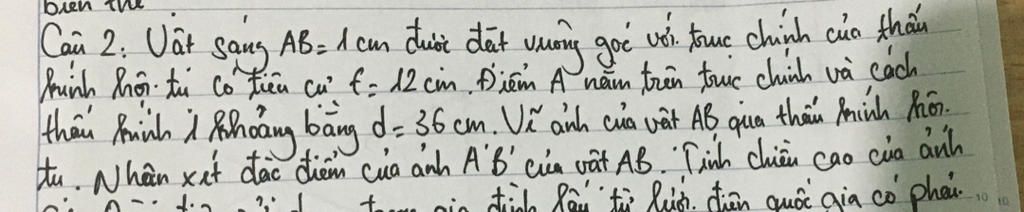 biến thế
Câu 2: Vật sáng AB = 1 cm được đặt vuông góc với trục chính của thấu
kính hội tụ có tiêu cự f = 12 cm. Điểm A nằm trên trục chính và cách
thấu kính 1 khoảng bằng d = 36 cm. Vẽ ảnh của vật AB qua thấu kính hội
tụ. Nhận xét đặc điểm của ảnh A'B' của vật AB. Tính chiều cao của ảnh
gia đình lấy từ lưới điện quốc gia có phải